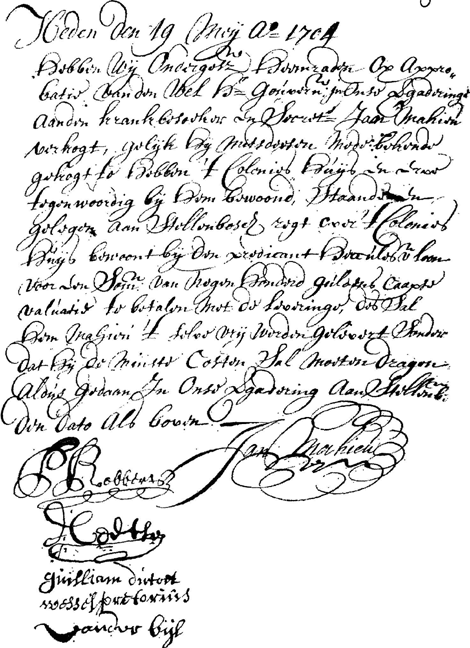 Heden den 19 Meij Ao 1704
Hebben Wij Ondergetn Heemraden Op Appro-
batie van den Wel Hr Gouverr in Onse Vgaderinge
Aanden krankbesoeker en Secrets Jan Mahieu
verkogt, gelijk Hij mitsdesen mede bekende
gekogt te Hebben 't Colonies Huijs en Erve
tegenwoordig bij Hem bewoond, Staande en
gelegen aan Stellenbosch regt over 't Colonies
Huijs bewoont bij den predicant Hercules v loon
voor een Som van Negen Honderd guldens Caapse
valuatie te betalen Met de Leveringe, des Sal
Hem Mahieu 't selve vrij Werden Gelevert Sonder
dat Hij de Minste Costen Sal Moeten dragen
Aldus Gedaan In Onse Vgadering Aan Stellenb
den dato Als boven
Jan Mahieu
Robberts
guilliam dutoit
wessel pretorius
vander bijl